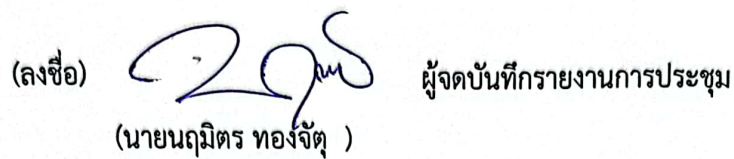 (ลงชื่อ) ผู้จดบันทึกรายงานการประชุม
(นายนฤมิตร ทองจัตุ )